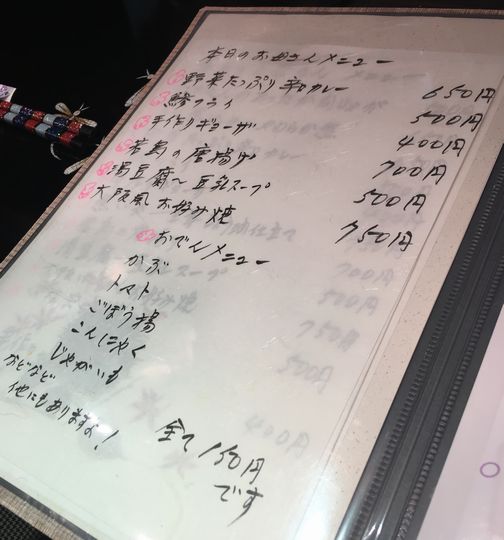 本日のお母さんメニュー
野菜たっぷり辛口カレー 650円
鯵フライ 500円
手作りギョーザ 400円
若鳥の唐揚げ 700円
湯豆腐〜豆乳スープ 500円
大阪風お好み焼 750円
おでんメニュー
かぶ
トマト
ごぼう揚
こんにゃく
じゃがいも
などなど
他にもありますよ!
全て150円
です